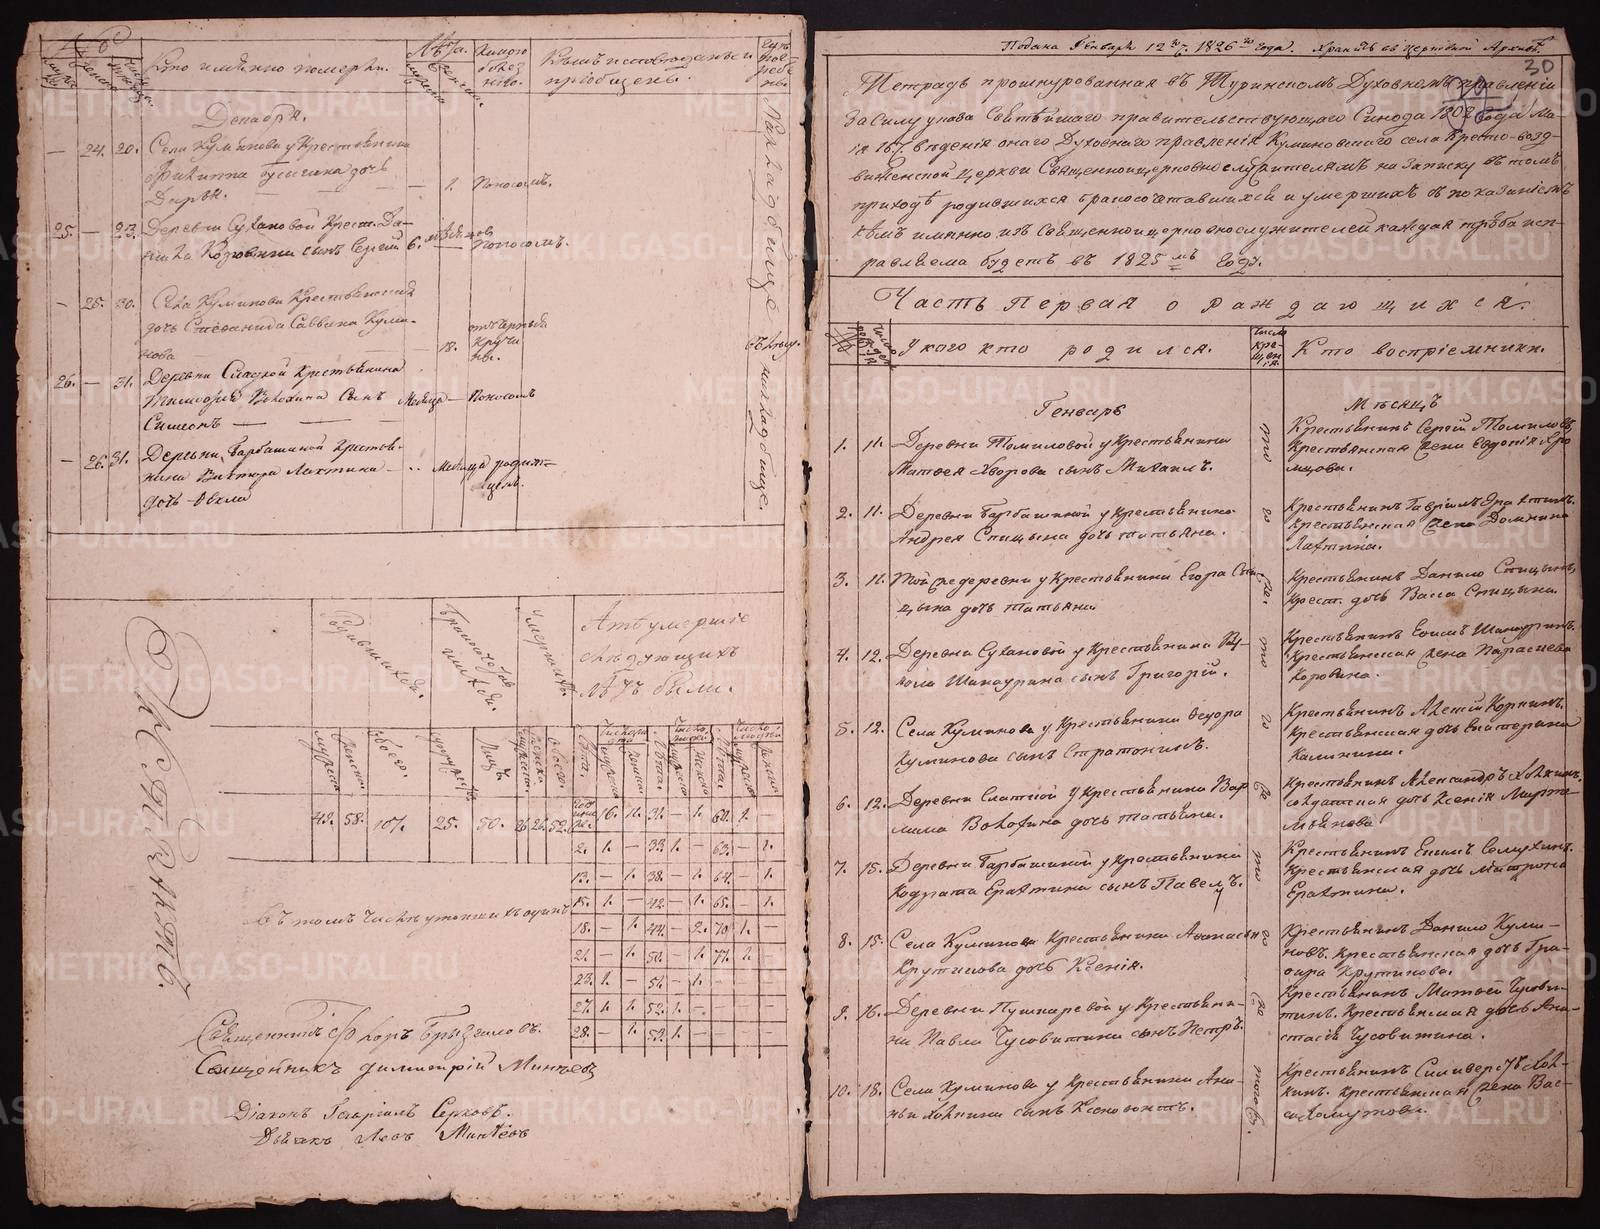 Кто имянно померъ.
Лѣта.
Какою болез
нію.
Кѣмъ исповѣданы и
пріобщены.
Декабря.
24. 20. Села Куминова у Крестьянина
Никиты дочь
Дарья. 1. Поносомъ.
25. — 23. Деревни Сухановой Крест. Да-
нила Коровина сынъ Сергій 6. мѣсяцовъ Поносомъ.
25. 30. Села Куминова Крестьянская
дочь Степанида Саввина Куми-
нова 18.
26. — 31. Деревни Слатной Крестьянина
Тимофея Волохина Сынъ Месяца Поносомъ
Симеонъ
26. 31. Деревни Барбашиной Крестья-
нина Виктора Лахтина Месяца родим-
дочь Ѳекла цемъ.
На кладбище
на кладбище.
Родившихся.
Бракосочетав
шихся.
Умершихъ.
А умершіе
слѣдующихъ
лѣтъ были.
мужеска
женска
обоего.
43. 58. 101. 25. 50. 26. 26. 52.
2. 1. — 33. 1. — 63. — 1.
13. — 1. 38. — 1. 64. — 1.
15. 1. — 42. — 1. 65. — 1.
18. — 1. 44. — 2. 70. 1. —
21. — 1. 50. — 1. 77. 1. —
23. 1. — 51. — 1. — — —
27. 1. 1. 52. 1. — — — —
28. — 1. 54. 1. — — — —
Въ томъ числѣ утопшихъ одинъ
Священникъ Флоръ Брызгаловъ.
Священникъ Димитрій Минѣевъ
Діаконъ Гавріилъ Серковъ.
Дьячекъ Левъ Минѣевъ
Подана Генваря 12го ч. 1826го года. Хранить въ церковной Архивѣ
30
Тетрадь прошнурованная въ Туринскомъ Духовномъ правленіи
За силу указа Святѣйшаго правительствующаго Синода 1802 года Ма-
ія 16.ч. вѣденія онаго Духовнаго правленія Куминовскаго села Кресто-возд-
виженской церкви Священноцерковнослужителямъ на записку въ томъ
приходѣ родившихся бракосочетавшихся и умершихъ съ показаніемъ
кѣмъ имянно изъ Священноцерковнослужителей каждая треба исп-
равляема будетъ въ 1825мъ году.
Часть первая о раждающихся.
У кого кто родился.
Число
кре-
щен
ія.
Кто воспріемники.
Генварь
Мѣсяцъ
1. 11. Деревни Томиловой у Крестьянина
Матвея Хворова сынъ Михаилъ.
Крестьянинъ Сергей Томиловъ,
Крестьянская жена Евдокія Хро
мцова.
2. 11. Деревни Барбашиной у Крестьянина
Андрея Спицына дочь татьяна.
Крестьянинъ Гаврилъ Ерахтинъ.
Крестьянская жена Домника
Лахтина.
3. 11. Той же деревни у Крестьянина Егора Спи-
цына дочь татьяна
Крестьянинъ Данило Спицынъ,
Крест. дочь Васса Спицына
4. 12. Деревни Сухановой у Крестьянина Ни-
колы Шинаурина сынъ Григорій.
Крестьянинъ Еѳимъ Шинауринъ.
Крестьянская жена Параскева
Коровина.
5. 12. Села Куминова у Крестьянина Ѳедора
Куминова сынъ Стратоникъ.
Крестьянинъ Алексей Коркинъ.
Крестьянская дочь екатерина
Калинина.
6. 12. Деревни Слатной у Крестьянина Вар
лама Волохина дочь татьяна.
Крестьянинъ Александръ Холкинъ,
солдатская дочь Ксенія Марте-
мьянова.
7. 15. Деревни Барбашиной у Крестьянина
Кодрата Ерахтина сынъ Павелъ.
Крестьянинъ Екимъ Семухинъ.
Крестьянская дочь Матрона
Ерахтина.
8. 15. Села Куминова Крестьянина Аѳанасія
Крутикова дочь Ксенія.
Крестьянинъ Данило Куми-
новъ. Крестьянская дочь Гла-
ѳира Крутикова.
9. 16. Деревни Пушкаревой у Крестьяни-
на Павла Чусовитина сынъ Петръ.
Крестьянинъ Матвей Чусови-
тинъ. Крестьянская дочь Ана-
стасія Чусовитина.
10. 18. Села Куминова у Крестьянина Ана-
ньи Холкина сынъ Ксенофонтъ.
Крестьянинъ Силиверстъ Хол-
кинъ. Крестьянская жена Вас-
са Хомутова.
METRIKI.GASO-URAL.RU